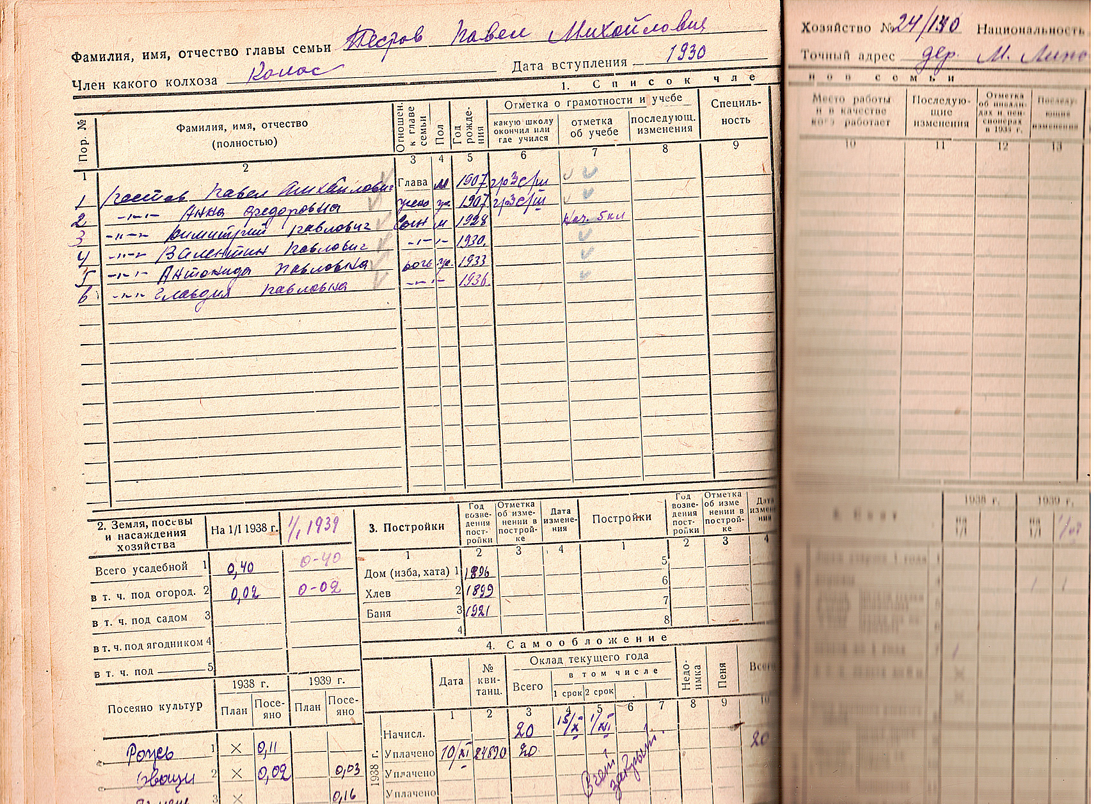 Фамилия, имя, отчество главы семьи Пестров Павел Михайлович
Член какого колхоза Колос Дата вступления 1930
1. Список чле
Пор. №
Фамилия, имя, отчество (полностью)
Отношен. к главе семьи
Пол
Год рождения
Отметка о грамотности и учебе
какую школу окончил или где учился
отметка об учебе
последующ. изменения
Специльность
1 2 3 4 5 6 7 8 9
1 Павел Михайлович Глава м 1907
2 -"-"- Анна Федоровна ж 1907
3 -"-"- Димитрий Павлович Сын м 1928
4 -"-"- Валентин Павлович -"- "- 1930
5 -"-"- Антонида Павловна дочь ж. 1933
6 -"-"- Клавдия Павловна -"- "- 1936
2. Земля, посевы и насаждения хозяйства
На 1/I 1938 г. 1/I 1939
Всего усадебной 1 0,40 0-40
в т. ч. под огород. 2 0,02 0-02
в т. ч. под садом 3
в т. ч. под ягодником 4
в т. ч. под 5
Посеяно культур
1938 г. 1939 г.
План Посеяно План Посеяно
Рожь 1 × 0,11
Овощи 2 × 0,02 0,03
3 × 0,16
3. Постройки
Год возведения постройки
Отметка об изменении в постройке
Дата изменения
Постройки
Год возведения постройки
Отметка об изменении в постройке
Дата измене
1 2 3 4 1 2 3 4
Дом (изба, хата) 1 1896 5
Хлев 2 1899 6
Баня 3 1921 7
4 8
4. Самообложение
Дата
№ квитанц.
Оклад текущего года
Всего
в том числе
1 срок 2 срок
Недоимка
Пеня
Всего
1 2 3 4 5 6 7 8 9 10
1938 г.
Начисл. 20 15/X 1/XI
Уплачено 10/XI 20 20
Уплачено
Уплачено
закрыт.
Хозяйство № 24/130 Национальность
Точный адрес дер. М. Липо
нов семьи
Место работы и в качестве кого работает
Последующие изменения
Отметка об инвалидах и пенсионерах в 1938 г.
Последующие изменения
10 11 12 13
1938 г. 1939 г.